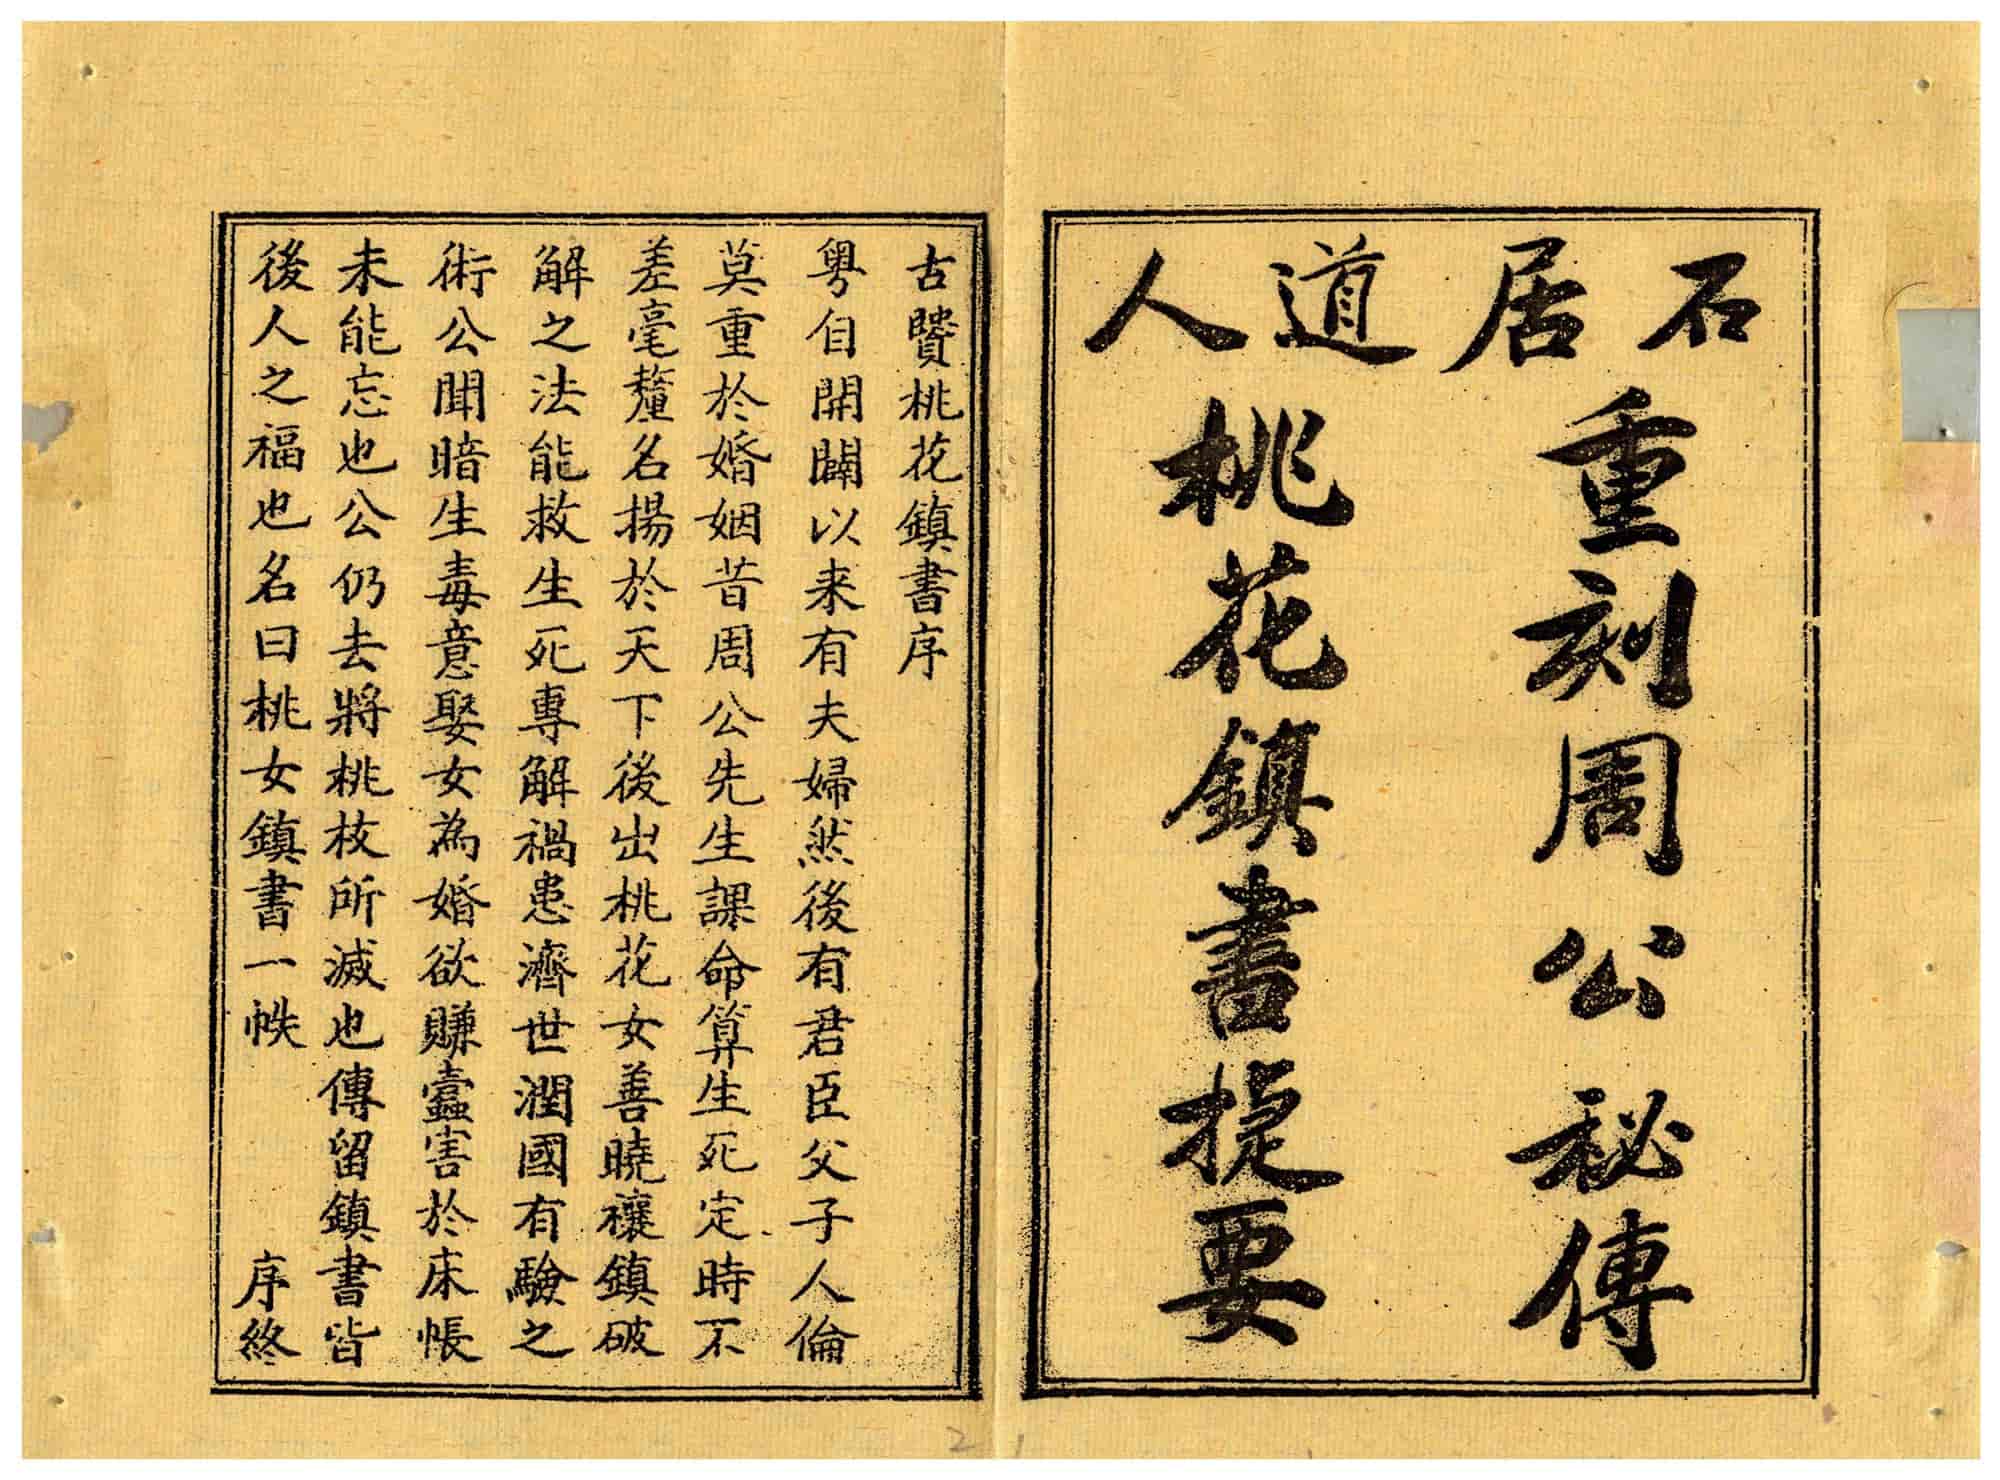 石居道人
重刻周公秘傳
桃花鎮書捷要
古賸桃花鎮書序
粤自開闢以来有夫婦然後有君臣父子人倫
莫重於婚姻昔周公先生課命算生死定時不
差毫釐名揚於天下後出桃花女善曉禳鎮破
解之法能救生死專解禍患濟世潤國有驗之
術公聞暗生毒意娶女為婚欲賺蠱害於床帳
未能忘也公仍去將桃枝所滅也傳留鎮書皆
後人之福也名曰桃女鎮書一帙 序終
2 1